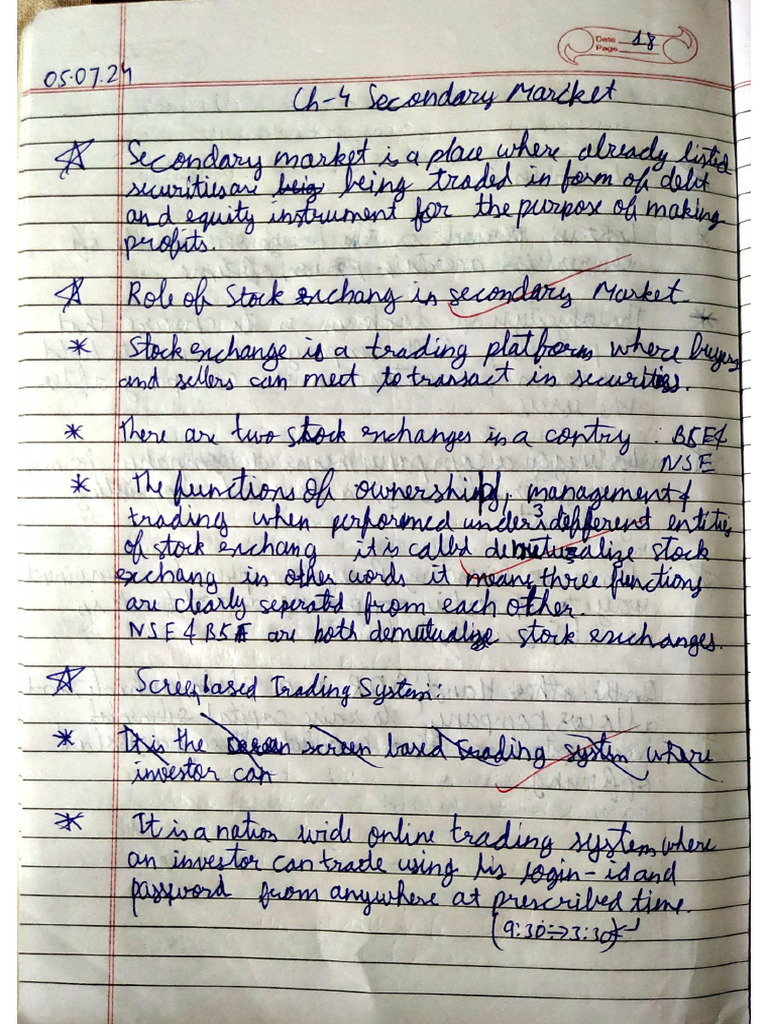 Date 18
Page
05.07.24
Ch-4 Secondary Market
Secondary market is a place where already listed
securities are beig being traded in form of debt
and equity instrument for the purpose of making
profits.
Role of Stock exchang in secondary Market.
* Stock exchange is a trading platform where buyers
and sellers can meet to transact in securities.
* There are two stock exchanges in a contry : BSE &
NSE
* The functions of ownership, management &
trading when performed under 3 defferent entities
of stock exchang it is called demutualize stock
exchang in other words it means three functions
are clearly seperated from each other.
NSE & BSE are both demutualize stock exchanges.
Screen based Trading System:
* It is the screen based trading system where
investor can
* It is a nation wide online trading system where
an investor can trade using his login-id and
password from anywhere at prescribed time.
(9:30 → 3:30)